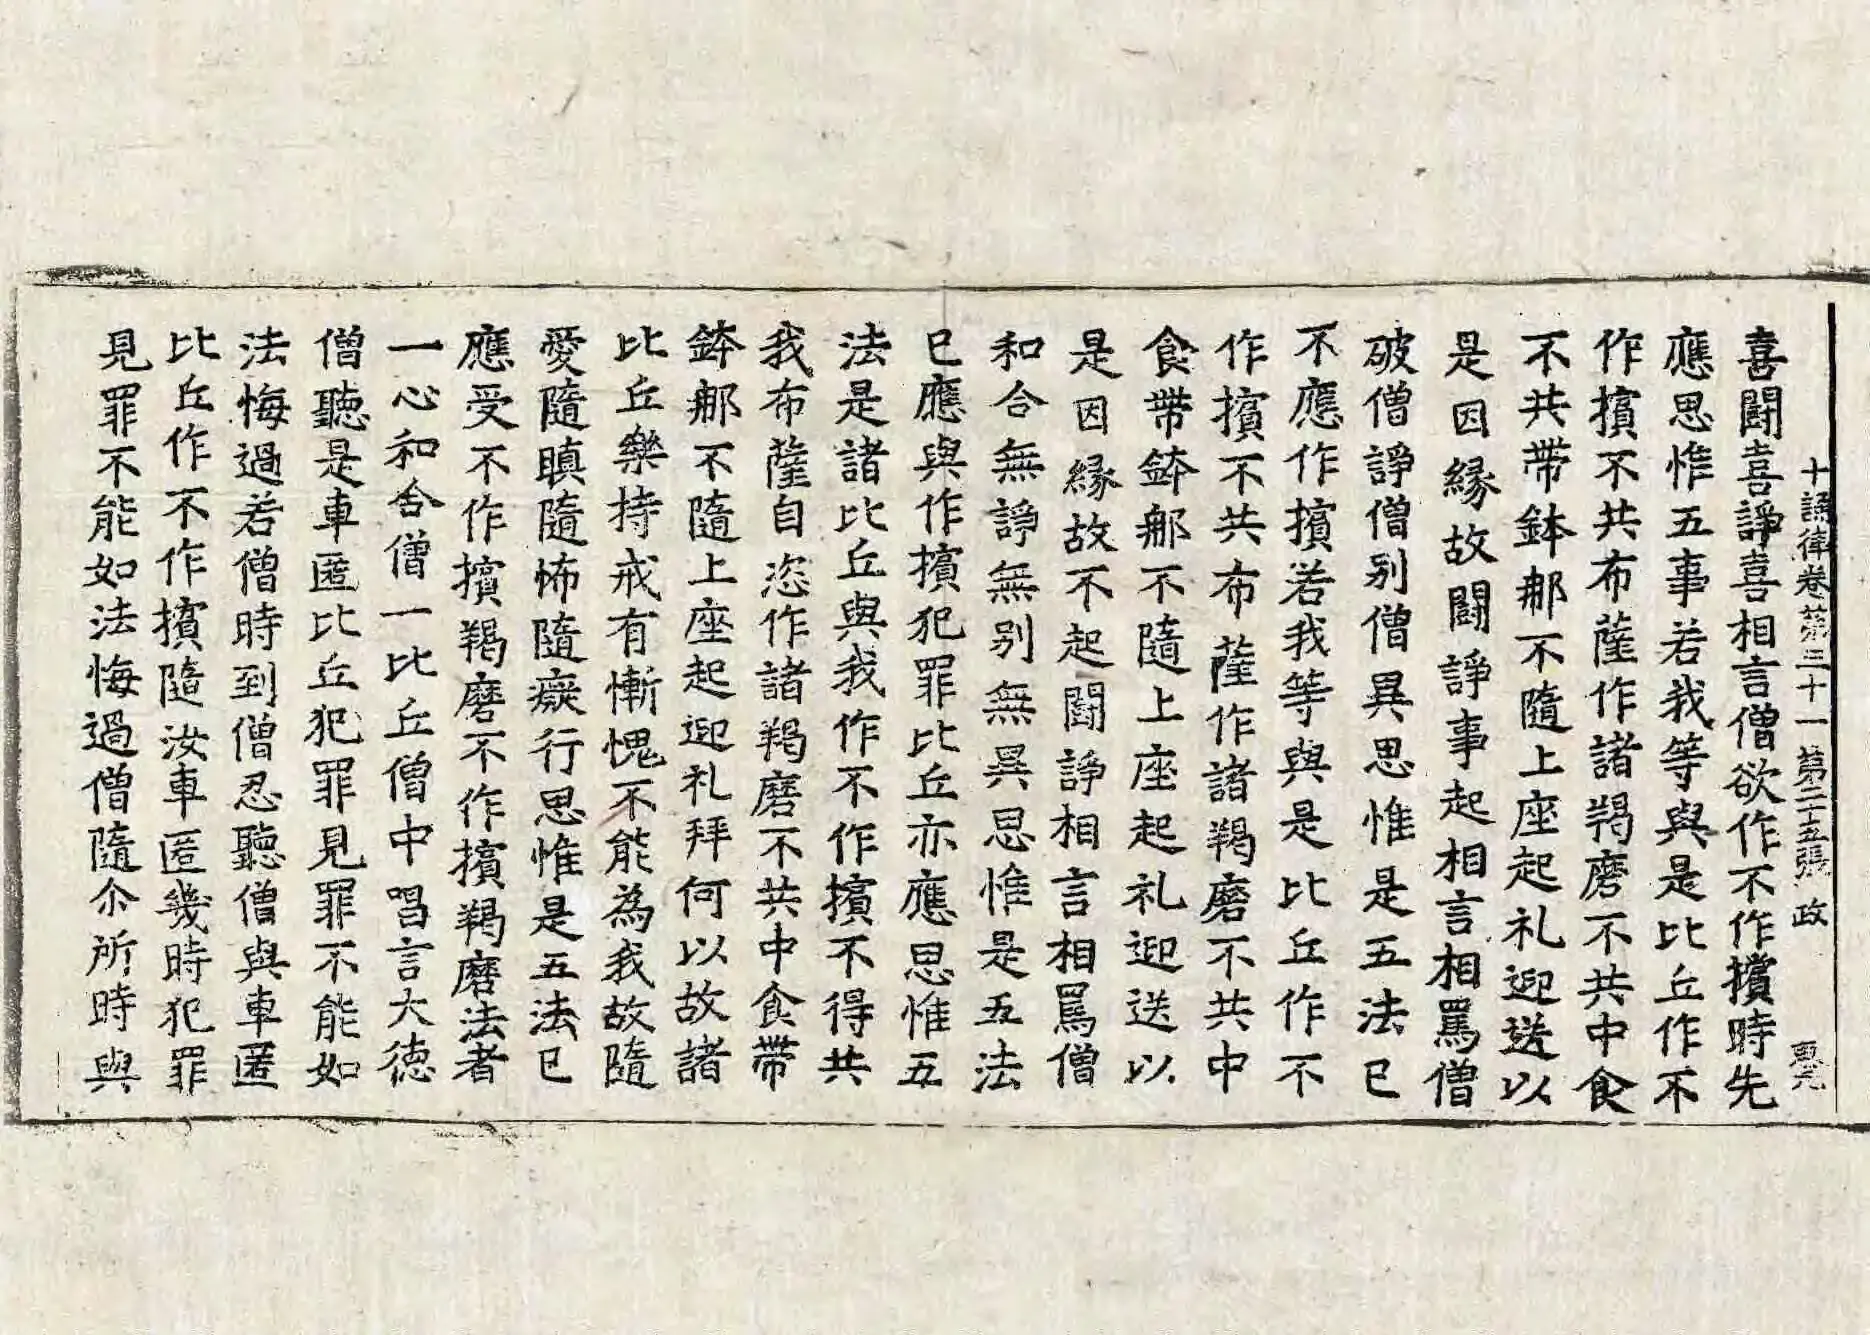 十誦律卷第三十一 第二十五張 政
喜鬪喜諍喜相言僧欲作不作擯時先
應思惟五事若我等與是比丘作不
作擯不共布薩作諸羯磨不共中食
不共帶鉢那不隨上座起礼迎送以
是因縁故鬪諍事起相言相罵僧
破僧諍僧别僧異思惟是五法已
不應作擯若我等與是比丘作不
作擯不共布薩作諸羯磨不共中
食帶鉢那不隨上座起礼迎送以
是因縁故不起鬪諍相言相罵僧
和合無諍無别無異思惟是五法
已應與作擯犯罪比丘亦應思惟五
法是諸比丘與我作不作擯不得共
我布薩自恣作諸羯磨不共中食帶
鉢那不隨上座起迎礼拜何以故諸
比丘樂持戒有慚愧不能為我故隨
愛隨瞋隨怖隨癡行思惟是五法已
應受不作擯羯磨不作擯羯磨法者
一心和合僧一比丘僧中唱言大德
僧聽是車匿比丘犯罪見罪不能如
法悔過若僧時到僧忍聽僧與車匿
比丘作不作擯隨汝車匿幾時犯罪
見罪不能如法悔過僧隨尒所時與